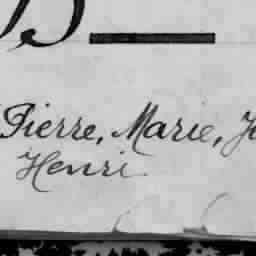 Pierre, Marie,
Henri